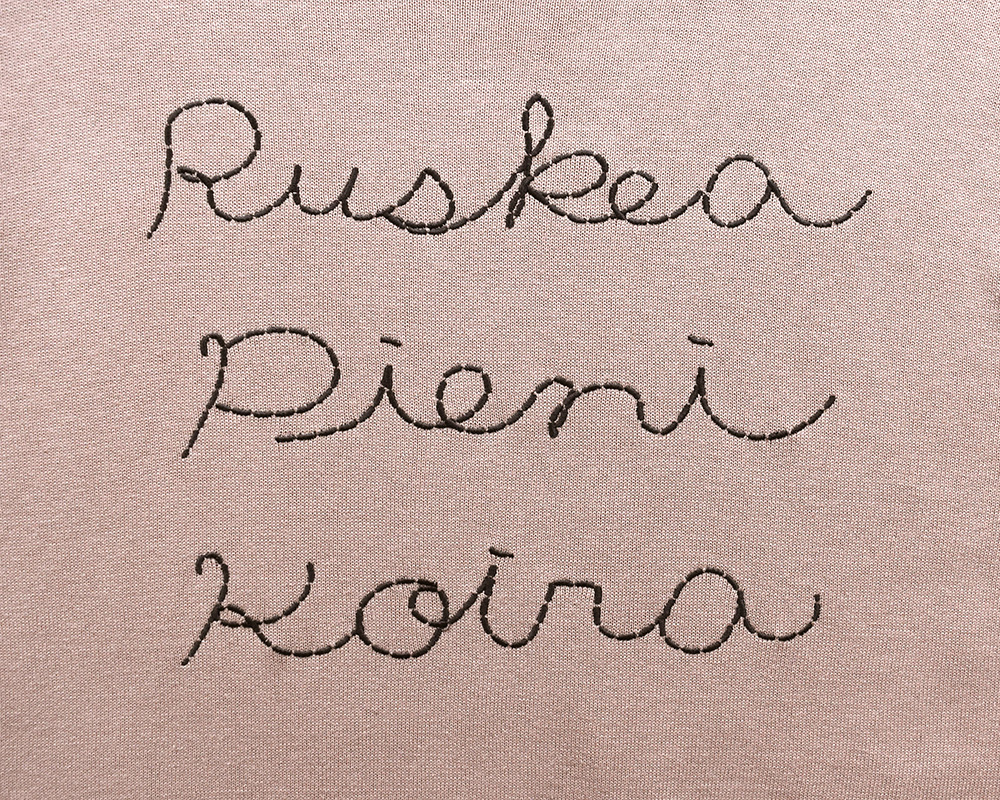 Ruskea
Pieni
Koira